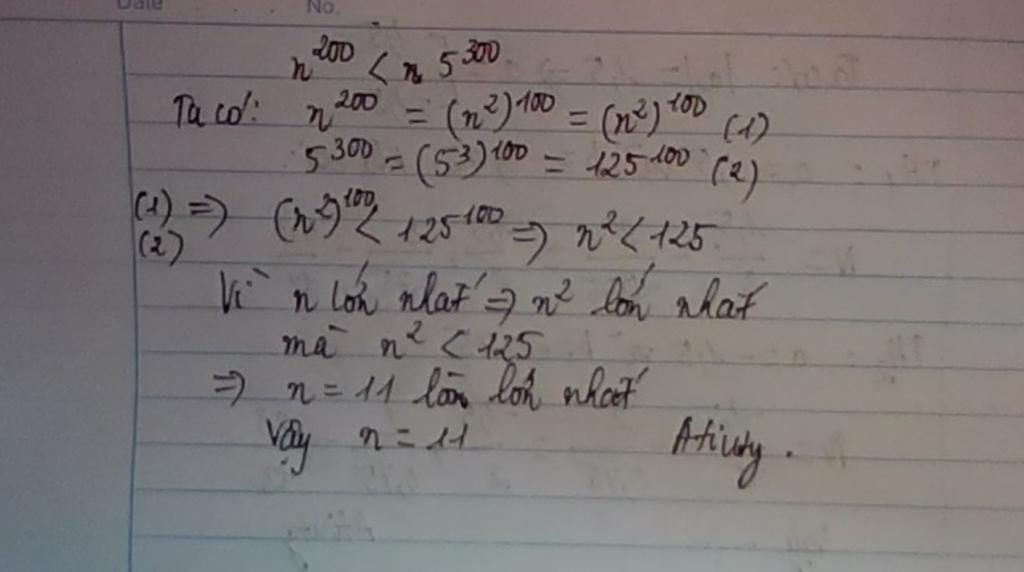 Date No.
n^200 < n 5^300
Ta có: n^200 = (n^2)^100 = (n^2)^100 (1)
5^300 = (5^3)^100 = 125^100 (2)
(1) => (n^2)^100 < 125^100 => n^2 < 125
(2)
Vì n lớn nhất => n^2 lớn nhất
mà n^2 < 125
=> n = 11 lớn nhất
Vậy n = 11